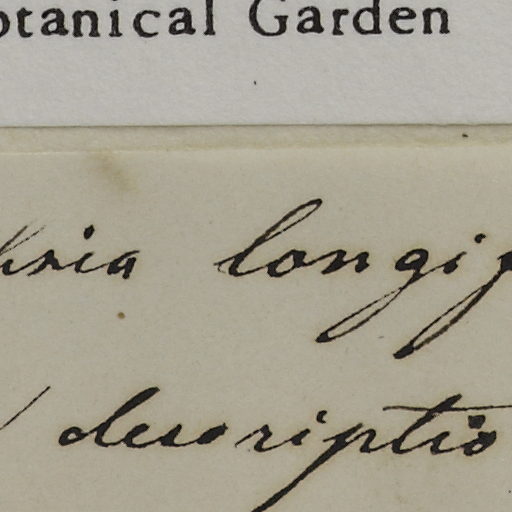 otanical Garden
longi
descriptio